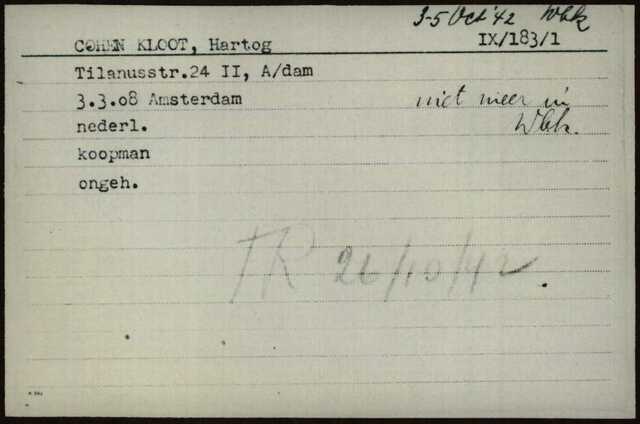 3-5 Oct '42 Wbk
COHEN KLOOT, Hartog IX/183/1
Tilanusstr.24 II, A/dam
3.3.08 Amsterdam niet meer in
nederl. Wbk.
koopman
ongeh.
TR 26/10/42.